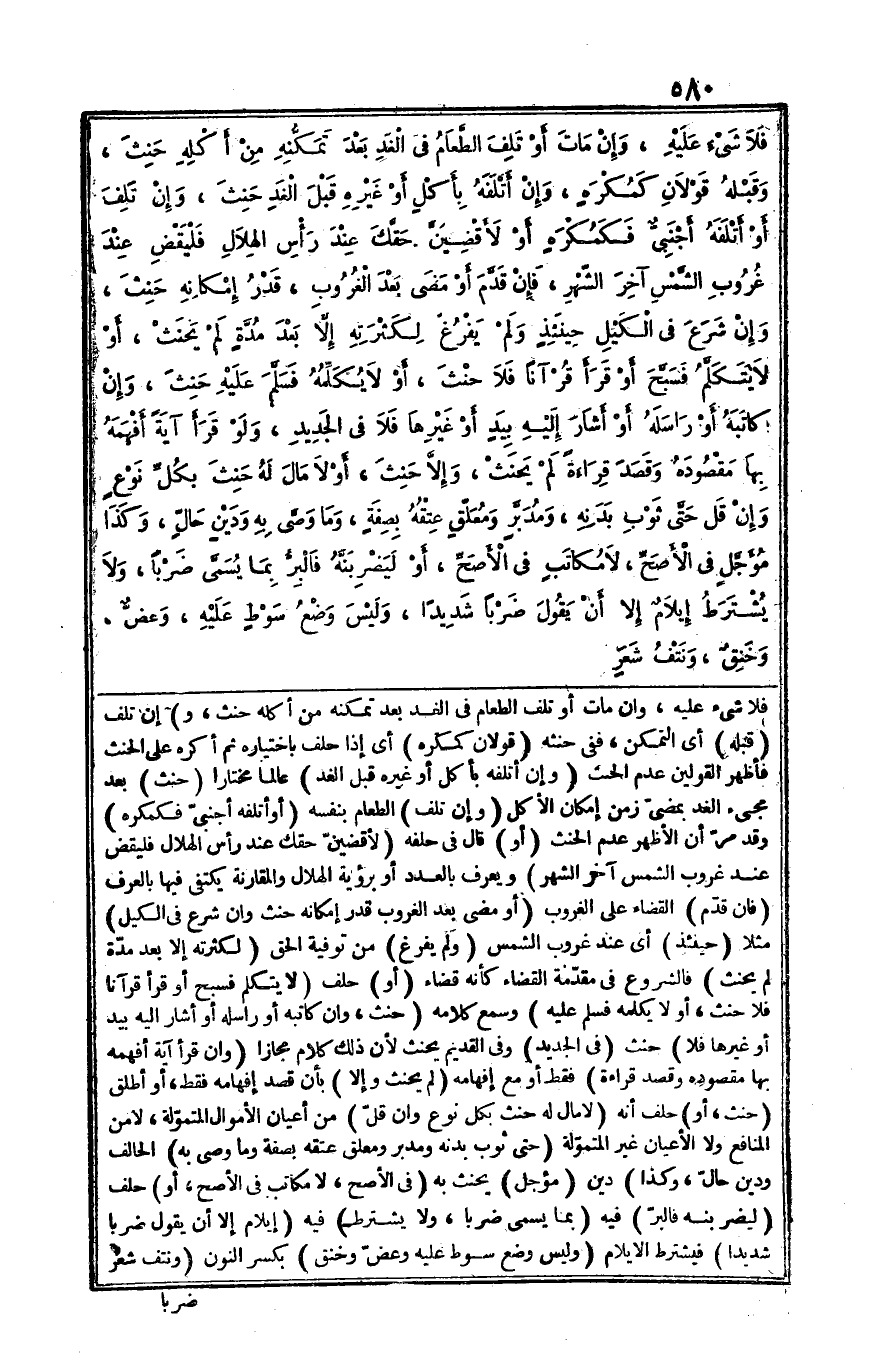 ٥٨٠
فَلَا شَيْءَ عَلَيْهِ ، وَإِنْ مَاتَ أَوْ تَلِفَ الطَّعَامُ فِى الْغَدِ بَعْدَ تَمَكُّنِهِ مِنْ أَكْلِهِ حَنِثَ ،
وَقَبْلَهُ قَوْلَانِ كَمُكْرَهٍ ، وَإِنْ أَتْلَفَهُ بِأَكْلٍ أَوْ غَيْرِهِ قَبْلَ الْغَدِ حَنِثَ ، وَإِنْ تَلِفَ
أَوْ أَتْلَفَهُ أَجْنَبِيٌّ فَكَمُكْرَهٍ أَوْ لَأَقْضِيَنَّ حَقَّكَ عِنْدَ رَأْسِ الهِلَالِ فَلْيَقْضِ عِنْدَ
غُرُوبِ الشَّمْسِ آخِرَ الشَّهْرِ ، فَإِنْ قَدَّمَ أَوْ مَضَى بَعْدَ الْغُرُوبِ ، قَدْرُ إِمْكَانِهِ حَنِثَ ،
وَإِنْ شَرَعَ فِى الْكَيْلِ حِينَئِذٍ وَلَمْ يَفْرُغْ لِكَثْرَتِهِ إِلَّا بَعْدَ مُدَّةٍ لَمْ يَحْنَثْ ، أَوْ
لَا يَتَكَلَّمُ فَسَبَّحَ أَوْ قَرَأَ قُرْآنًا فَلَا حِنْثَ ، أَوْ لَا يُكَلِّمُهُ فَسَلَّمَ عَلَيْهِ حَنِثَ ، وَإِنْ
كَاتَبَهُ أَوْ رَاسَلَهُ أَوْ أَشَارَ إِلَيْهِ بِيَدٍ أَوْ غَيْرِهَا فَلَا فِى الجَدِيدِ ، وَلَوْ قَرَأَ آيَةً أَفْهَمَهُ
بِهَا مَقْصُودَهُ وَقَصَدَ قِرَاءَةً لَمْ يَحْنَثْ ، وَإِلَّا حَنِثَ ، أَوْ لَا مَالَ لَهُ حَنِثَ بِكُلِّ نَوْعٍ
وَإِنْ قَلَ حَتَّى ثَوْبِ بَدَنِهِ ، وَمُدَبَّرٍ وَمُعَلَّقٍ عِتْقُهُ بِصِفَةٍ ، وَمَا وَصَّى بِهِ وَدَيْنٍ حَالٍّ ، وَكَذَا
مُؤَجَّلٍ فِى الْأَصَحِّ ، لَا مُكَاتَبٍ فِى الْأَصَحِّ ، أَوْ لَيَضْرِبَنَّهُ فَالْبِرُّ بِمَا يُسَمَّى ضَرْبًا ، وَلَا
يُشْتَرَطُ إِيلَامٌ إِلا أَنْ يَقُولَ ضَرْبًا شَدِيدًا ، وَلَيْسَ وَضْعُ سَوْطٍ عَلَيْهِ ، وَعضٌّ ،
وَخَنِقٌ ، وَنَتْفُ شَعَرٍ
فلا شىء عليه ، وان مات أو تلف الطعام فى الغد بعد تمكنه من أكله حنث ، و) إن تلف
(قبله) أى التمكن ، ففى حنثه (قولان كمكره) أى إذا حلف باختياره ثم أكره على الحنث
فأظهر القولين عدم الحنث (وإن أتلفه بأكل أو غيره قبل الغد) عالما مختارا (حنث) بعد
مجىء الغد بمضىّ زمن إمكان الأكل (وإن تلف) الطعام بنفسه (أو أتلفه أجنبىّ فكمكره)
وقد مرّ أن الأظهر عدم الحنث (أو) قال فى حلفه (لأقضينّ حقك عند رأس الهلال فليقض
عند غروب الشمس آخر الشهر) ويعرف بالعدد أو برؤية الهلال والمقارنة يكتفى فيها بالعرف
(فان قدّم) القضاء على الغروب (أو مضى بعد الغروب قدر إمكانه حنث وان شرع فى الكيل)
مثلا (حينئذ) أى عند غروب الشمس (ولم يفرغ) من توفية الحق (لكثرته إلا بعد مدّة
لم يحنث) فالشروع فى مقدّمة القضاء كأنه قضاء (أو) حلف (لا يتكلم فسبح أو قرأ قرآنا
فلا حنث ، أو لا يكلمه فسلم عليه) وسمع كلامه (حنث ، وان كاتبه أو راسله أو أشار اليه بيد
أو غيرها فلا) حنث (فى الجديد) وفى القديم يحنث لأن ذلك كلام مجازا (وان قرأ آية أفهمه
بها مقصوده وقصد قراءة) فقط أو مع إفهامه (لم يحنث وإلا) بأن قصد إفهامه فقط ، أو أطلق
(حنث ، أو) حلف أنه (لامال له حنث بكل نوع وان قلّ) من أعيان الأموال المتموّلة ، لامن
المنافع ولا الأعيان غير المتموّلة (حتى ثوب بدنه ومدبر ومعلق عتقه بصفة وما وصى به) الحالف
ودين حالّ ، وكذا) دين (مؤجل) يحنث به (فى الأصح ، لا مكاتب فى الأصح ، أو) حلف
(ليضربنه فالبرّ) فيه (بما يسمى ضربا ، ولا يشترط) فيه (إيلام إلا أن يقول ضربا
شديدا) فيشترط الايلام (وليس وضع سوط عليه وعضّ وخنق) بكسر النون (ونتف شعر
ضربا